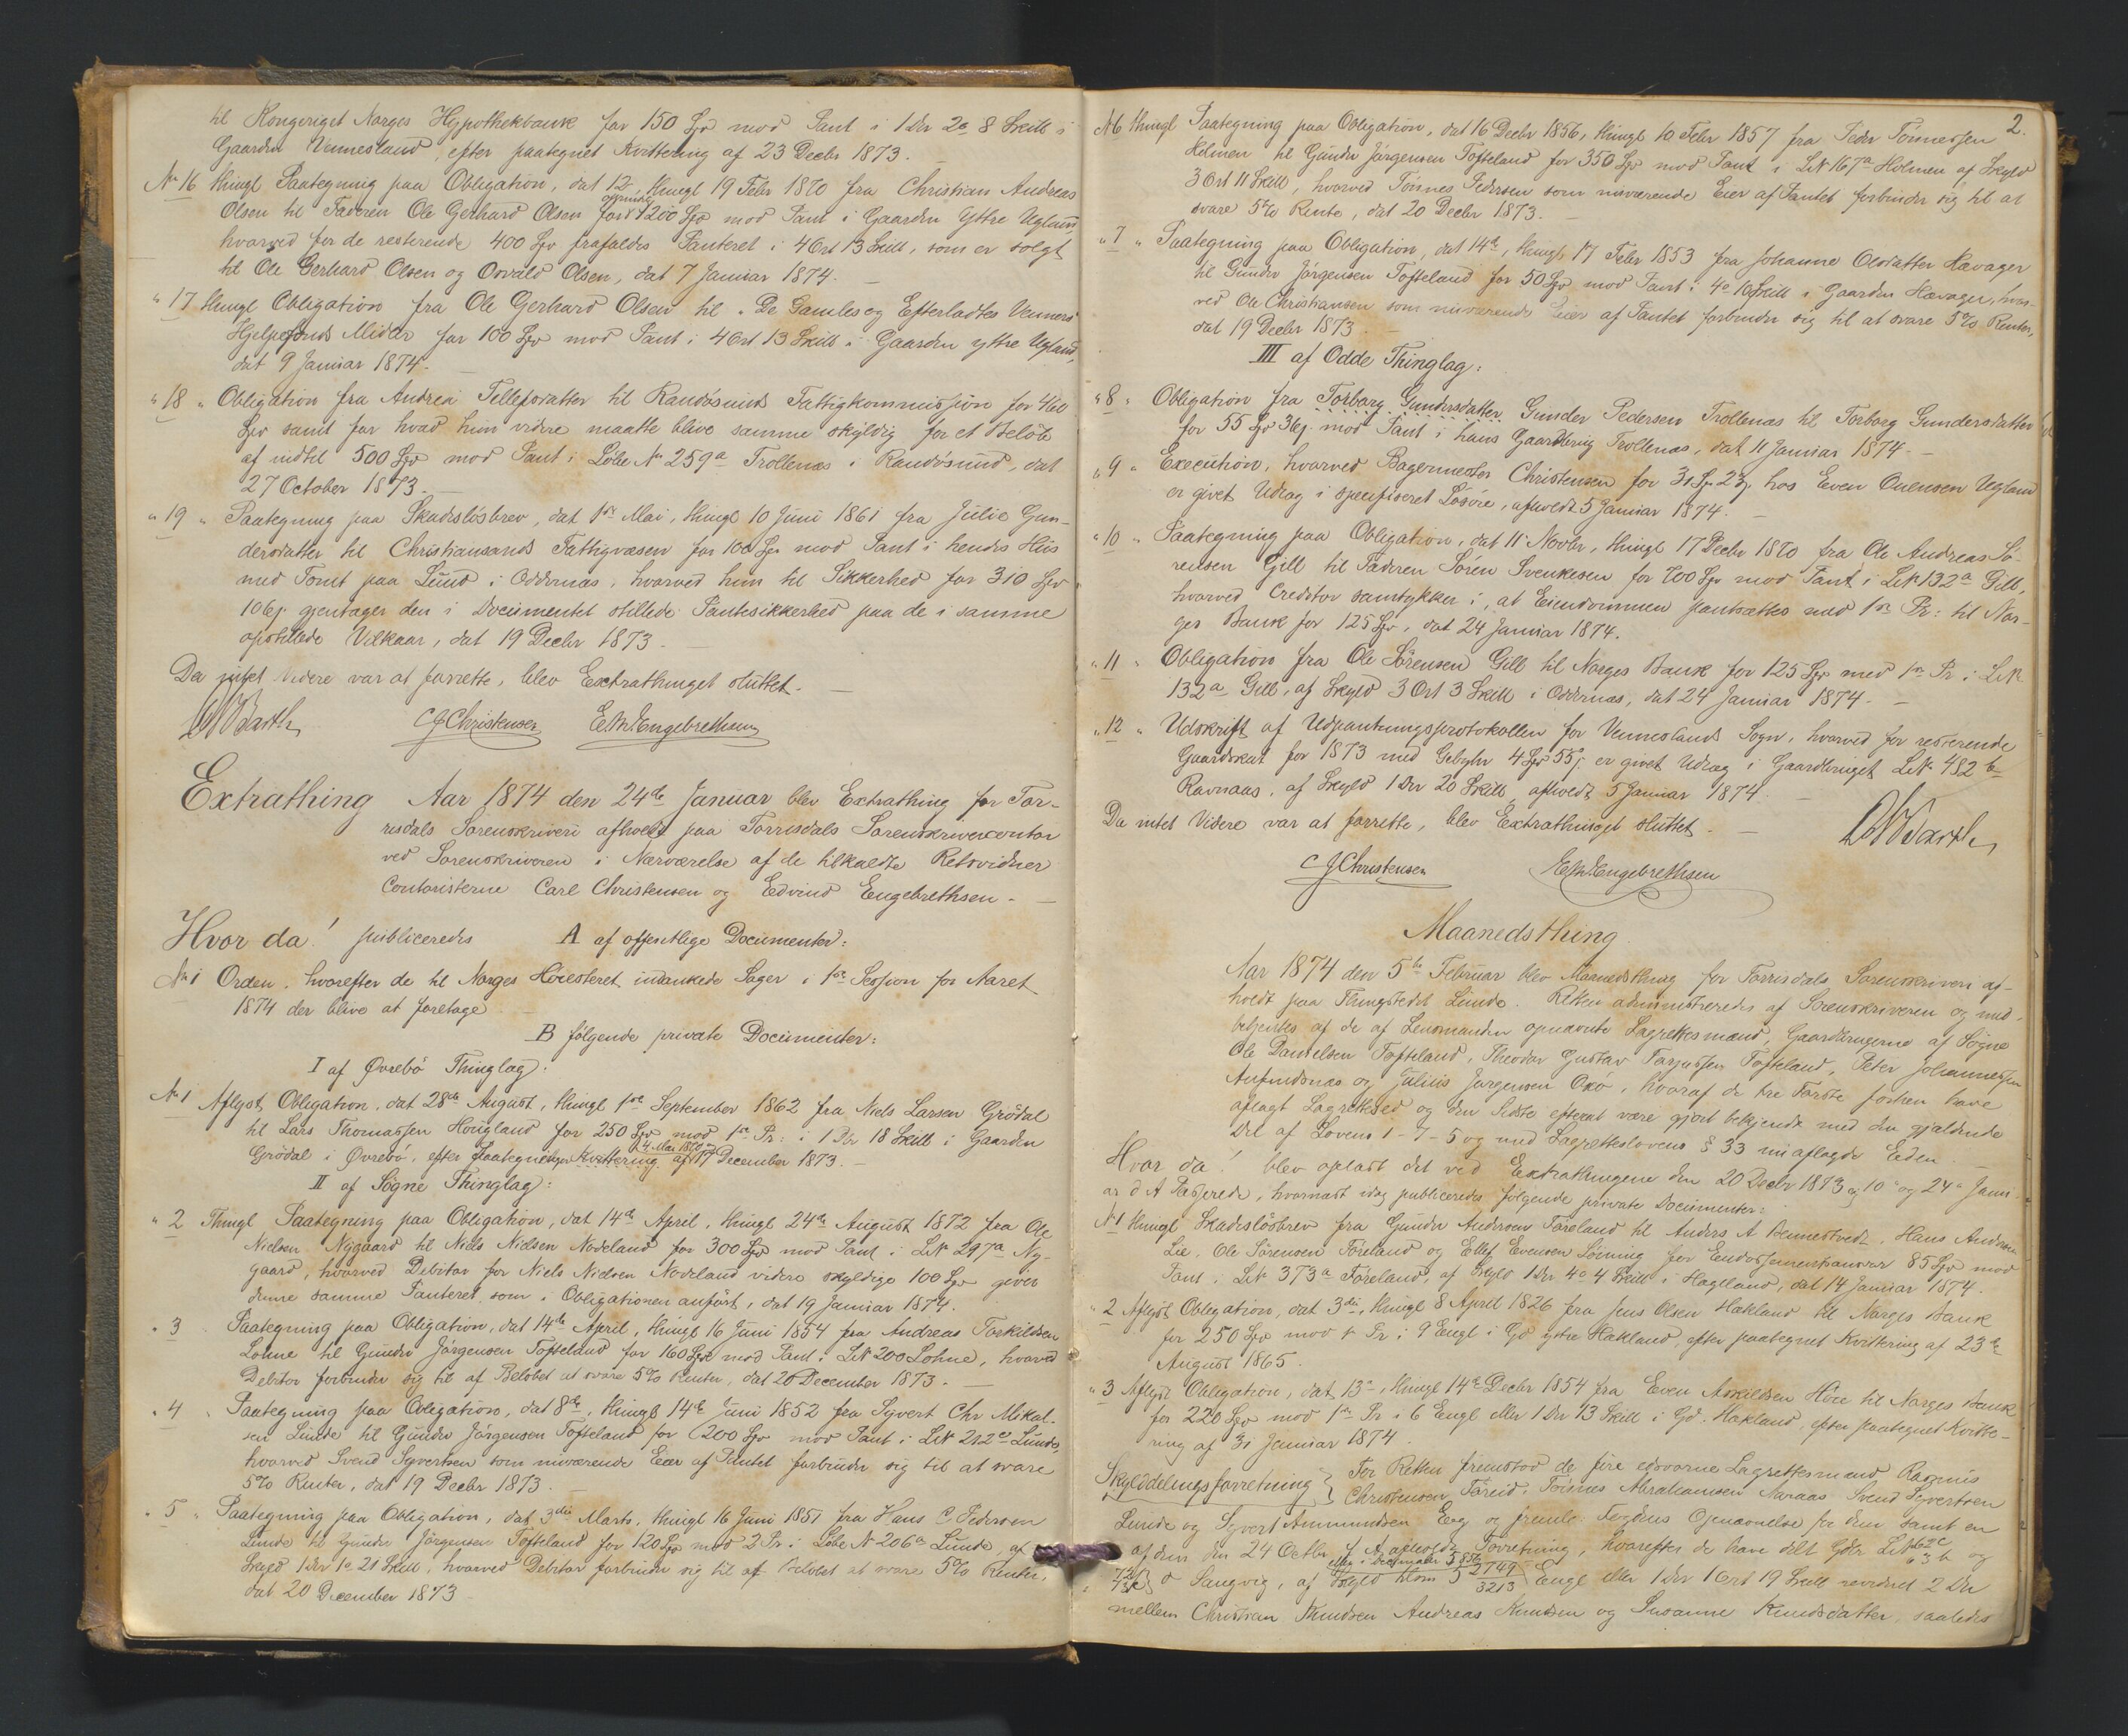 til Kongeriget Norges Hypothekbank for 150 Spd mod Pant i 1 Dlr 2 o 8 Skill i
Gaarden Vennesland, efter paategnet Kvittering af 23 Decbr 1873.
No 16 thingl Paategning paa Obligation, dat 12, thingl 19 Febr 1870 fra Christian Andreas
Olsen til Faderen Ole Gerhard Olsen for oprindl 1200 Spd mod Pant i Gaarden Yttre Ugland,
hvorved for de resterende 400 Spd frafaldes Panteret i 4 Ort 13 Skill, som er solgt
til Ole Gerhard Olsen og Osvald Olsen, dat 7 Januar 1874.
" 17 thingl Obligation fra Ole Gerhard Olsen til "De Gamles og Efterladtes Venners"
Hjelpefonds Midler for 100 Spd mod Pant i 4 Ort 13 Skill i Gaarden yttre Ugland,
dat 9 Januar 1874.
" 18 " Obligation fra Andrea Tellefsdatter til Randøsunds Fattigkommission for 460
Spd samt for hvad hun videre maatte blive samme skyldig for et Beløb
af indtil 500 Spd mod Pant i Løbe No 259a Trollenæs i Randøsund, dat
27 October 1873.
" 19 " Paategning paa Skadesløsbrev, dat 1ste Mai, thingl 10 Juni 1861 fra Julie Gun-
dersdatter til Christiansands Fattigvæsen for 100 Spd mod Pant i hendes Huus
med Tomt paa Lund i Oddernæs, hvorved hun til Sikkerhed for 310 Spd
106 ß gjentager den i Documentet stillede Pantesikkerhed paa de i samme
opstillede Vilkaar, dat 19 Decbr 1873.
Da intet videre var at forrette, blev Extrathinget sluttet.
Barth CJChristensen Engebrethsen
Extrathing Aar 1874 den 24de Januar blev Extrathing for Tor-
risdals Sorenskriveri afholdt paa Torrisdals Sorenskrivercontor
ved Sorenskriveren i Nærværelse af de tilkaldte Retsvidner
Contoristerne Carl Christensen og Edvind Engebrethsen.
Hvor da! publiceredes A af offentlige Documenter:
No 1 Orden, hvorefter de til Norges Høiesteret indankede Sager i 1ste Session for Aaret
1874 der blive at foretage
B følgende private Documenter:
I af Øvrebø Thinglag:
No 1 Aflyst Obligation, dat 28de August, thingl 1ste September 1862 fra Niels Larsen Grødal
til Lars Thomassen Hougland for 250 Spd mod 1ste Pr: i 1 Dlr 18 Skill i Gaarden
Grødal i Øvrebø, efter Paategninger Kvittering af 4 Mai 1870 17 December 1873.
II af Søgne Thinglag:
" 2 Thingl Paategning paa Obligation, dat 14de April, thingl 24de August 1872 fra Ole
Nielsen Nygaard til Niels Nielsen Nodeland for 300 Spd mod Pant i L№ 297a Ny-
gaard, hvorved Debitor for Niels Nielsen Nodeland videre skyldige 100 Spd giver
denne samme Panteret som i Obligationen anført, dat 19 Januar 1874.
" 3 Paategning paa Obligation, dat 14de April, thingl 16 Juni 1854 fra Andreas Torkildsen
Lohne til Gunder Jørgensen Tofteland for 160 Spd mod Pant i L№ 200 Lohne, hvorved
Debitor forbinder sig til af Beløbet at svare 5% Renter, dat 20 December 1873.
" 4 " Paategning paa Obligation, dat 8de, thingl 14de Juni 1852 fra Syvert Chr Mikal-
sen Lunde til Gunder Jørgensen Tofteland for 200 Spd mod Pant i L№ 212c Lunde,
hvorved Svend Syvertsen som nuværende Eier af Pantet forbinder sig til at svare
5% Renter, dat 19 Decbr 1873.
" 5 " Paategning paa Obligation, dat 3die Marts, thingl 16 Juni 1851 fra Hans C Pedersen
Lunde til Gunder Jørgensen Tofteland for 120 Spd mod 2 Pr i Løbe № 206a Lunde, af
Skyld 1 Dlr 1 o 21 Skill, hvorved Debitor forbinder sig til af Beløbet at svare 5% Renter,
dat 20 December 1873
2.
№ 6 thingl Paategning paa Obligation, dat 16 Decbr 1856, thingl 10 Febr 1857 fra Peder Tønnessen
Holmen til Gunder Jørgensen Tofteland for 350 Spd mod Pant i L№ 167a Holmen af Skyld
3 Ort 11 Skill, hvorved Tønnes Pedersen som nuværende Eier af Pantet forbinder sig til at
svare 5% Rente, dat 20 Decbr 1873.
" 7 " Paategning paa Obligation, dat 14de, thingl 17 Febr 1853 fra Johanne Olsdatter Høvager
til Gunder Jørgensen Tofteland for 50 Spd mod Pant i 4 o 10 Skill i Gaarden Høvager, hvor-
ved Ole Christiansen som nuværende Eier af Pantet forbinder sig til at svare 5% Renter,
dat 19 Decbr 1873.
III af Odde Thinglag:
" 8 " Obligation fra Torborg Gundersdatter Gunder Pedersen Trollenæs til Torborg Gundersdatter
for 55 Spd 36 ß mod Pant i hans Gaardbrug Trollenæs, dat 11 Januar 1874.
" 9 " Execution, hvorved Bagermester Christensen for 31 Sp 23 ß hos Even Ouensen Ugland
er givet Udlæg i specificeret Løsøre, afholdt 5 Januar 1874.
" 10 " Paategning paa Obligation, dat 11 Novbr, thingl 17 Decbr 1870 fra Ole Andreas Sø-
rensen Gill til Faderen Søren Svenkesen for 700 Spd mod Pant i L№ 132a Gill,
hvorved Creditor samtykker i, at Eiendommen pantsættes med 1ste Pr: til Nor-
ges Bank for 125 Spd, dat 24 Januar 1874.
" 11 " Obligation fra Ole Sørensen Gill til Norges Bank for 125 Spd med 1ste Pr i L№
132a Gill, af Skyld 3 Ort 3 Skill i Oddernæs, dat 24 Januar 1874.
" 12 " Udskrift af Udpantningsprotokollen for Vennesland Sogn, hvorved for resterende
Gaardskat for 1873 med Gebyhr 4 Spd 55 ß er givet Udlæg i Gaardbruget L№ 482b
Ravnaas, af Skyld 1 Dlr 20 Skill, afholdt 5 Januar 1874.
Da intet Videre var at forrette, blev Extrathinget sluttet.
Barth
CJChristensen Engebrethsen
Maanedsthing
Aar 1874 den 5te Februar blev Maanedsthing for Torrisdals Sorenskriveri af-
holdt paa Thingstedet Lunde. Retten administreredes af Sorenskriveren og med-
betjentes af de af Lensmanden opnævnte Lagrettesmænd, Gaardbrugerne af Søgne
Ole Danielsen Tofteland, Theodor Gustav Tarjussen Tofteland, Peter Johannessen
Aufindsnæs og Julius Jørgensen Oxø, hvoraf de tre Første forhen have
aflagt Lagrettesed og den Sidste efterat være gjort bekjendt med den gjældende
Del af Lovens 1-7-5 og med Lagretteslovens § 33 nu aflagde Eden
Hvor da! blev oplæst det ved Extrathingene den 20 Decbr 1873 og 10de og 24de Janu-
ar d A Passerede, hvornæst idag publiceredes følgende private Documenter:
№ 1 thingl Skadesløsbrev fra Gunder Andersen Føreland til Anders A Bennestvedt, Hans Andersen
Lie, Ole Sørensen Føreland og Ellef Evensen Løining for Endossementsansvar 85 Spd mod
Pant i L№ 373a Føreland, af Skyld 1 Dlr 4 o 4 Skill i Hægeland, dat 14 Januar 1874.
" 2 Aflyst Obligation, dat 3die, thingl 8 April 1826 fra Jens Olsen Hakland til Norges Bank
for 250 Spd mod 1 Pr i 9 Engl i Gd ytre Hakland, efter paategnet Kvittering af 23de
August 1865.
" 3 Aflyst Obligation, dat 13de, thingl 14de Decbr 1854 fra Even Askildsen Høie til Norges Bank
for 220 Spd mod 1ste Pr i 6 Engl eller 1 Dlr 13 Skill i Gd. Hakland, efter paategnet Kvitte-
ring af 31 Januar 1874.
Skylddelingsforretning } For Retten fremstod de fire edsvorne Lagrettesmænd Rasmus
Christensen Føreid, Tønnes Abrahamsen Aaraas Svend Syvertsen
Lunde og Syvert Ammundsen Eeg og fremlt: Fogdens Opnævnelse for dem samt en
af dem den 24 Octbr f A afholdt Forretning, hvorefter de have delt Gdbr L№ 62c 63b og
73a Langvig, af Skyld tilsm 5 2749/3213 Engl eller 1 Dlr 1 Ort 19 Skill revideret 2 Dlr
mellem Christian Knudsen Andreas Knudsen og Susanne Knudsdatter, saaledes